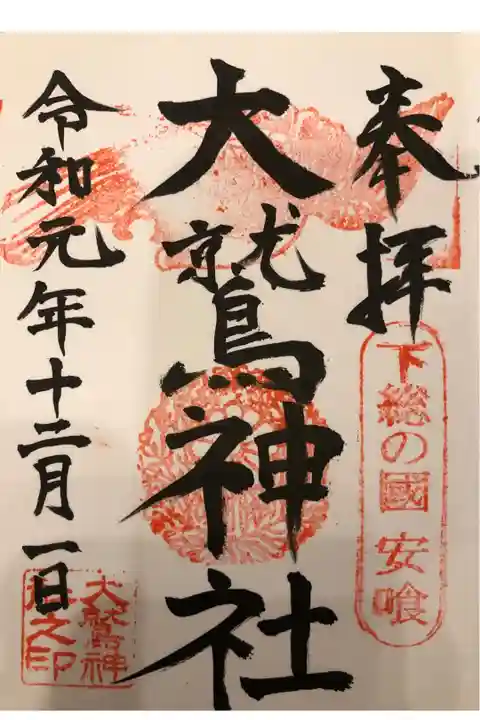 奉拝
下総の國 安喰
大鷲神社
令和元年十二月一日
大鷲神
社之印